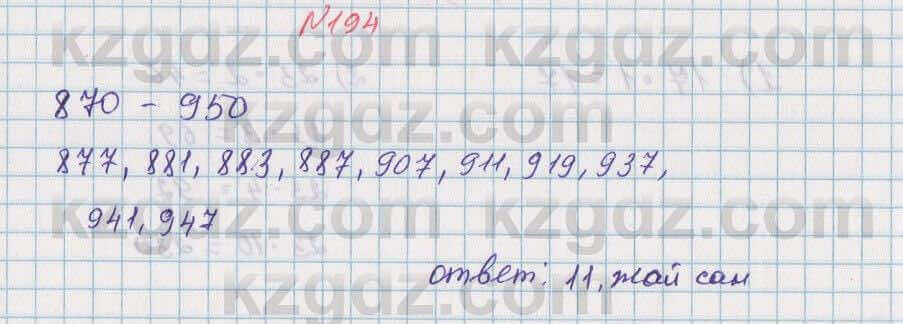 №194
870 - 950
877, 881, 883, 887, 907, 911, 919, 937,
941, 947
ответ: 11, жай сан
kzgdz.com
kzgdz.com
kzgdz.com
kzgdz.com
kzgdz.com